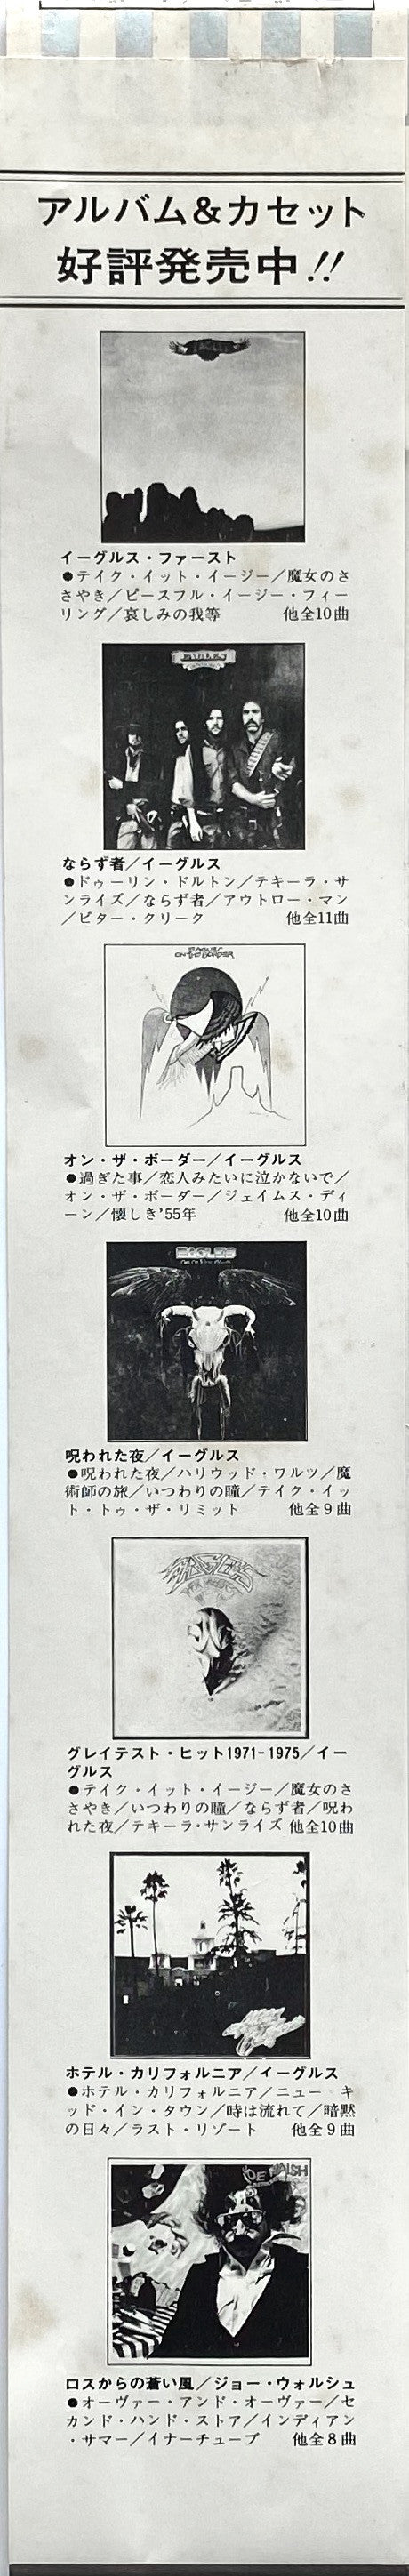 アルバム&カセット
好評発売中!!
イーグルス・ファースト
●テイク・イット・イージー/魔女のさ
さやき/ピースフル・イージー・フィー
リング/哀しみの我等 他全10曲
EAGLES
ならず者/イーグルス
●ドゥーリン・ドルトン/テキーラ・サ
ンライズ/ならず者/アウトロー・マン
/ビター・クリーク 他全11曲
EAGLES
ON THE BORDER
オン・ザ・ボーダー/イーグルス
●過ぎた事/恋人みたいに泣かないで/
オン・ザ・ボーダー/ジェイムス・ディ
ーン/懐しき'55年 他全10曲
EAGLES
呪われた夜/イーグルス
●呪われた夜/ハリウッド・ワルツ/魔
術師の旅/いつわりの瞳/テイク・イッ
ト・トゥ・ザ・リミット 他全9曲
EAGLES
グレイテスト・ヒット1971-1975/イー
グルス
●テイク・イット・イージー/魔女のさ
さやき/いつわりの瞳/ならず者/呪わ
れた夜/テキーラ・サンライズ 他全10曲
ホテル・カリフォルニア/イーグルス
●ホテル・カリフォルニア/ニュー キ
ッド・イン・タウン/時は流れて/暗黙
の日々/ラスト・リゾート 他全9曲
JOE WALSH
ロスからの蒼い風/ジョー・ウォルシュ
●オーヴァー・アンド・オーヴァー/セ
カンド・ハンド・ストア/インディアン
・サマー/イナーチューブ 他全8曲